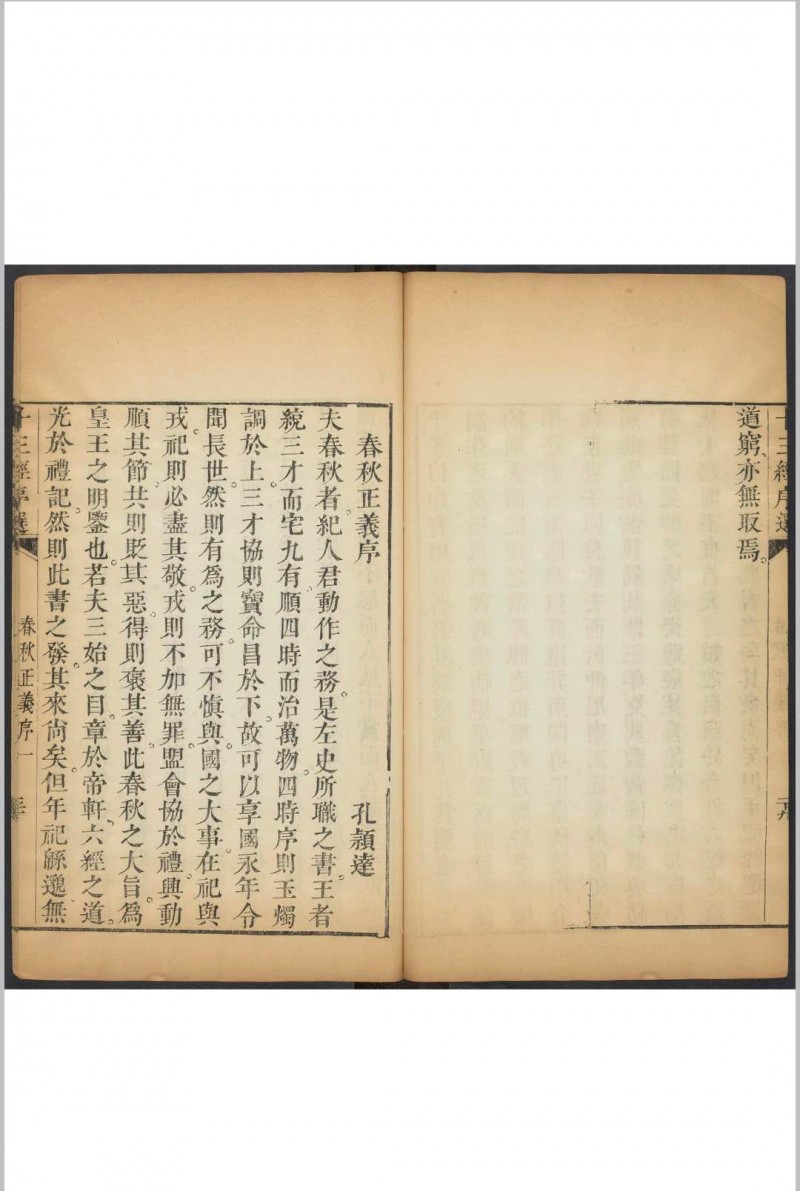 十三經序選
道窮、亦無取焉。
春秋正義序
孔頴達
夫春秋者、紀人君動作之務。是左史所職之書。王者
統三才而宅九有、順四時而治萬物。四時序則玉燭
調於上。三才協則寶命昌於下。故可以享國永年。令
聞長世。然則有爲之務。可不慎與。國之大事、在祀與
戎。祀則必盡其敬。戎則不加無罪。盟會協於禮。興動
順其節。共則貶其惡。得則褒其善。此春秋之大旨。爲
皇王之明鑒也。若夫三始之目。章於帝軒、六經之道。
光於禮記。然則此書之發。其來尙矣。但年祀緜邈、無
十三經序選
春秋正義序 一
三十